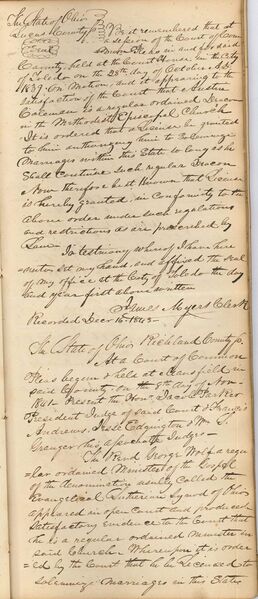 The State of Ohio
Lucas County ss
Seal
Be it remembered that at
a session of the Court of Com
mon Pleas in and for said
County held at the Court House in the City
of Toledo on the 25th day of October AD
1839 On Motion, and it appearing to the
satisfaction of the Court that
Coleman is a regular ordained Deacon
in the Methodist Episcopal Church
It is ordered that a License be granted
to him authorizing him to Solemnize
Marriages within this State so long as he
Shall Continue such regular Deacon
Now therefore be it Known that License
is hereby granted in Conformity to the
above order under such regulations
and restrictions as are prescribed by
Law
In testimony whereof I have here
unto set my hand, and affixed the seal
of my office at the City of Toledo the day
and year first above written
James Myers Clerk
Recorded Decr 1843
The State of Ohio Richland County ss
At a Court of Common
Pleas begun & held at Mansfield in
said County on the 9th day of Nov
Present the Hon. Jacob Parker
President Judge of said Court & Francis
Andrews, & Wm S.
Granger his associate Judges
The Revd George Wolf a regu
lar ordained Minister of the Gospel
of the denomination usually Called the
Evangelical Lutheran Synod of Ohio
appeared in open Court and produced
satisfactory evidence to the Court that
he is a regular ordained Minister in
said Church Whereupon it is order
=ed by the Court that he be licensed to
solemnize Marriages in this State